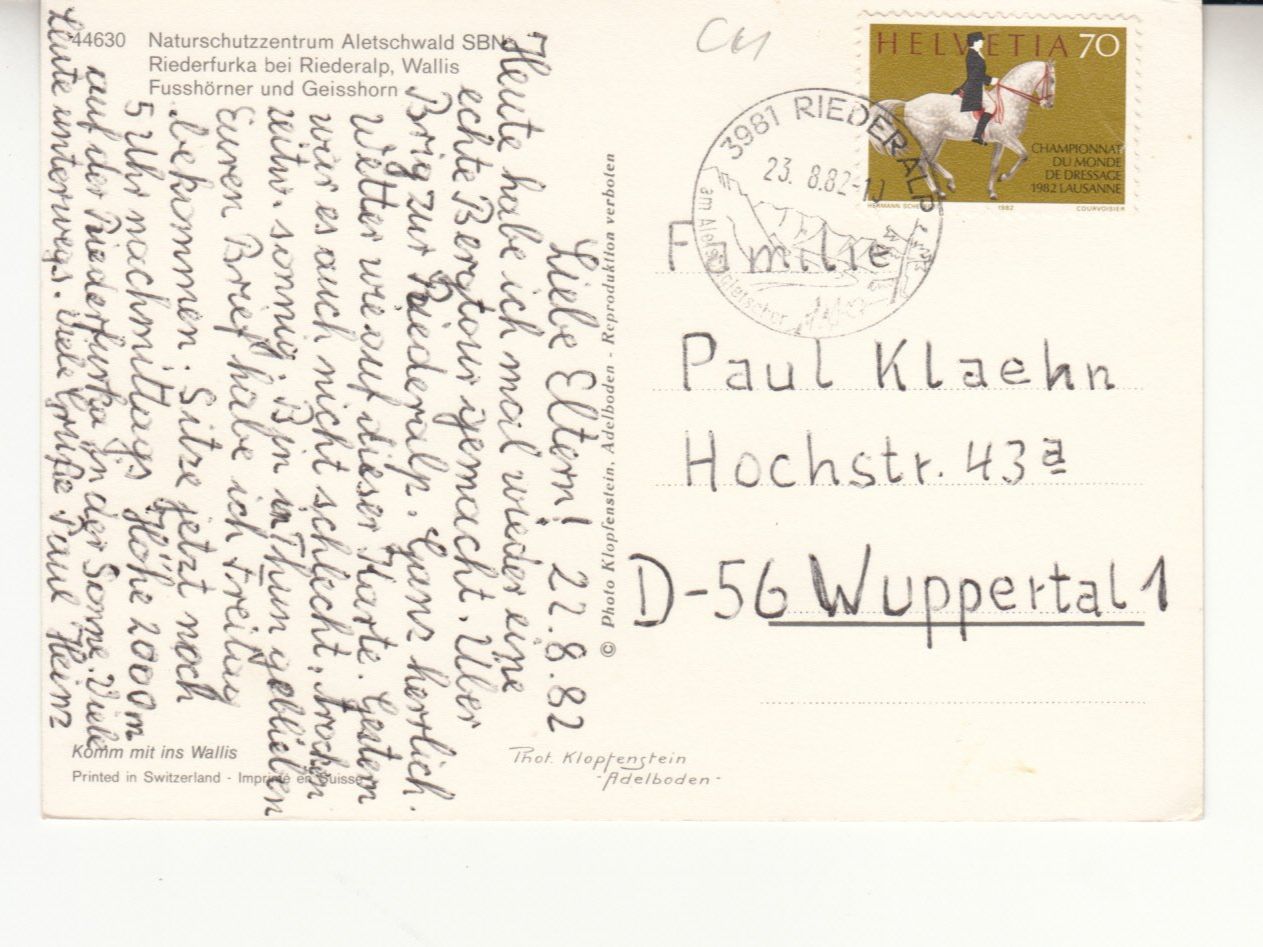 44630 Naturschutzzentrum Aletschwald SBN
Riederfurka bei Riederalp, Wallis
Fusshörner und Geisshorn
Liebe Eltern! 22.8.82
Heute habe ich mal wieder eine
echte Bergtour gemacht. Über
Brig zur Riederalp. Ganz herrlich.
Wetter wie auf dieser Karte. Gestern
war es auch nicht schlecht, trocken
zeitw. sonnig. Bin in Thun geblieben
Euren Brief habe ich Freitag
bekommen. Sitze jetzt noch
5 Uhr nachmittags Höhe 2000m
auf der Riederfurka in der Sonne. Viele
Leute unterwegs. Viele Grüße Paul Heinz
Komm mit ins Wallis
Printed in Switzerland - Imprimé en Suisse
© Photo Klopfenstein, Adelboden - Reproduktion verboten
Phot. Klopfenstein
-Adelboden-
CH
HELVETIA 70
CHAMPIONNAT
DU MONDE
DE DRESSAGE
1982 LAUSANNE
HERMANN 1982 COURVOISIER
3981 RIEDERALP
23. 8.82
am Aletschgletscher
Familie
Paul Klaehn
Hochstr. 43a
D-56 Wuppertal 1